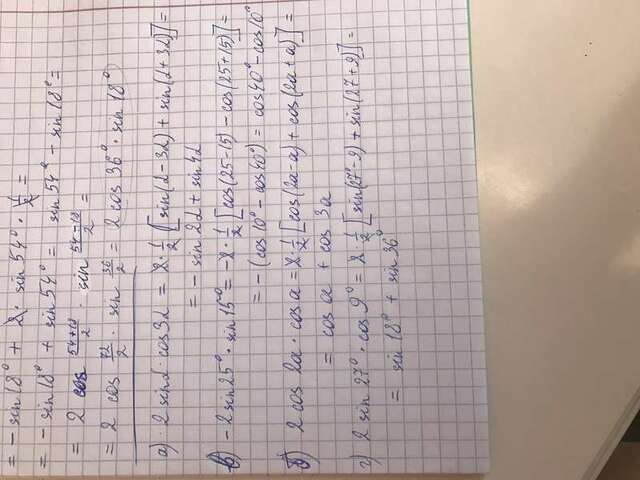 = - sin 18° + 2 · sin 54° · 1/2 =
= - sin 18° + sin 54° = sin 54° - sin 18° =
= 2 cos (54+18)/2 · sin (54-18)/2 =
= 2 cos 72/2 · sin 36/2 = 2 cos 36° · sin 18°
а) 2 sin α · cos 3α = 2 · 1/2 [sin(α - 3α) + sin(α + 3α)] =
= - sin 2α + sin 4α
в) - 2 sin 25° · sin 15° = - 2 · 1/2 [cos(25 - 15) - cos(25 + 15)] =
= - (cos 10° - cos 40°) = cos 40° - cos 10°
б) 2 cos 2a · cos a = 2 · 1/2 [cos(2a - a) + cos(2a + a)] =
= cos a + cos 3a
г) 2 sin 27° · cos 9° = 2 · 1/2 [sin(27° - 9) + sin(27 + 9)] =
= sin 18° + sin 36°